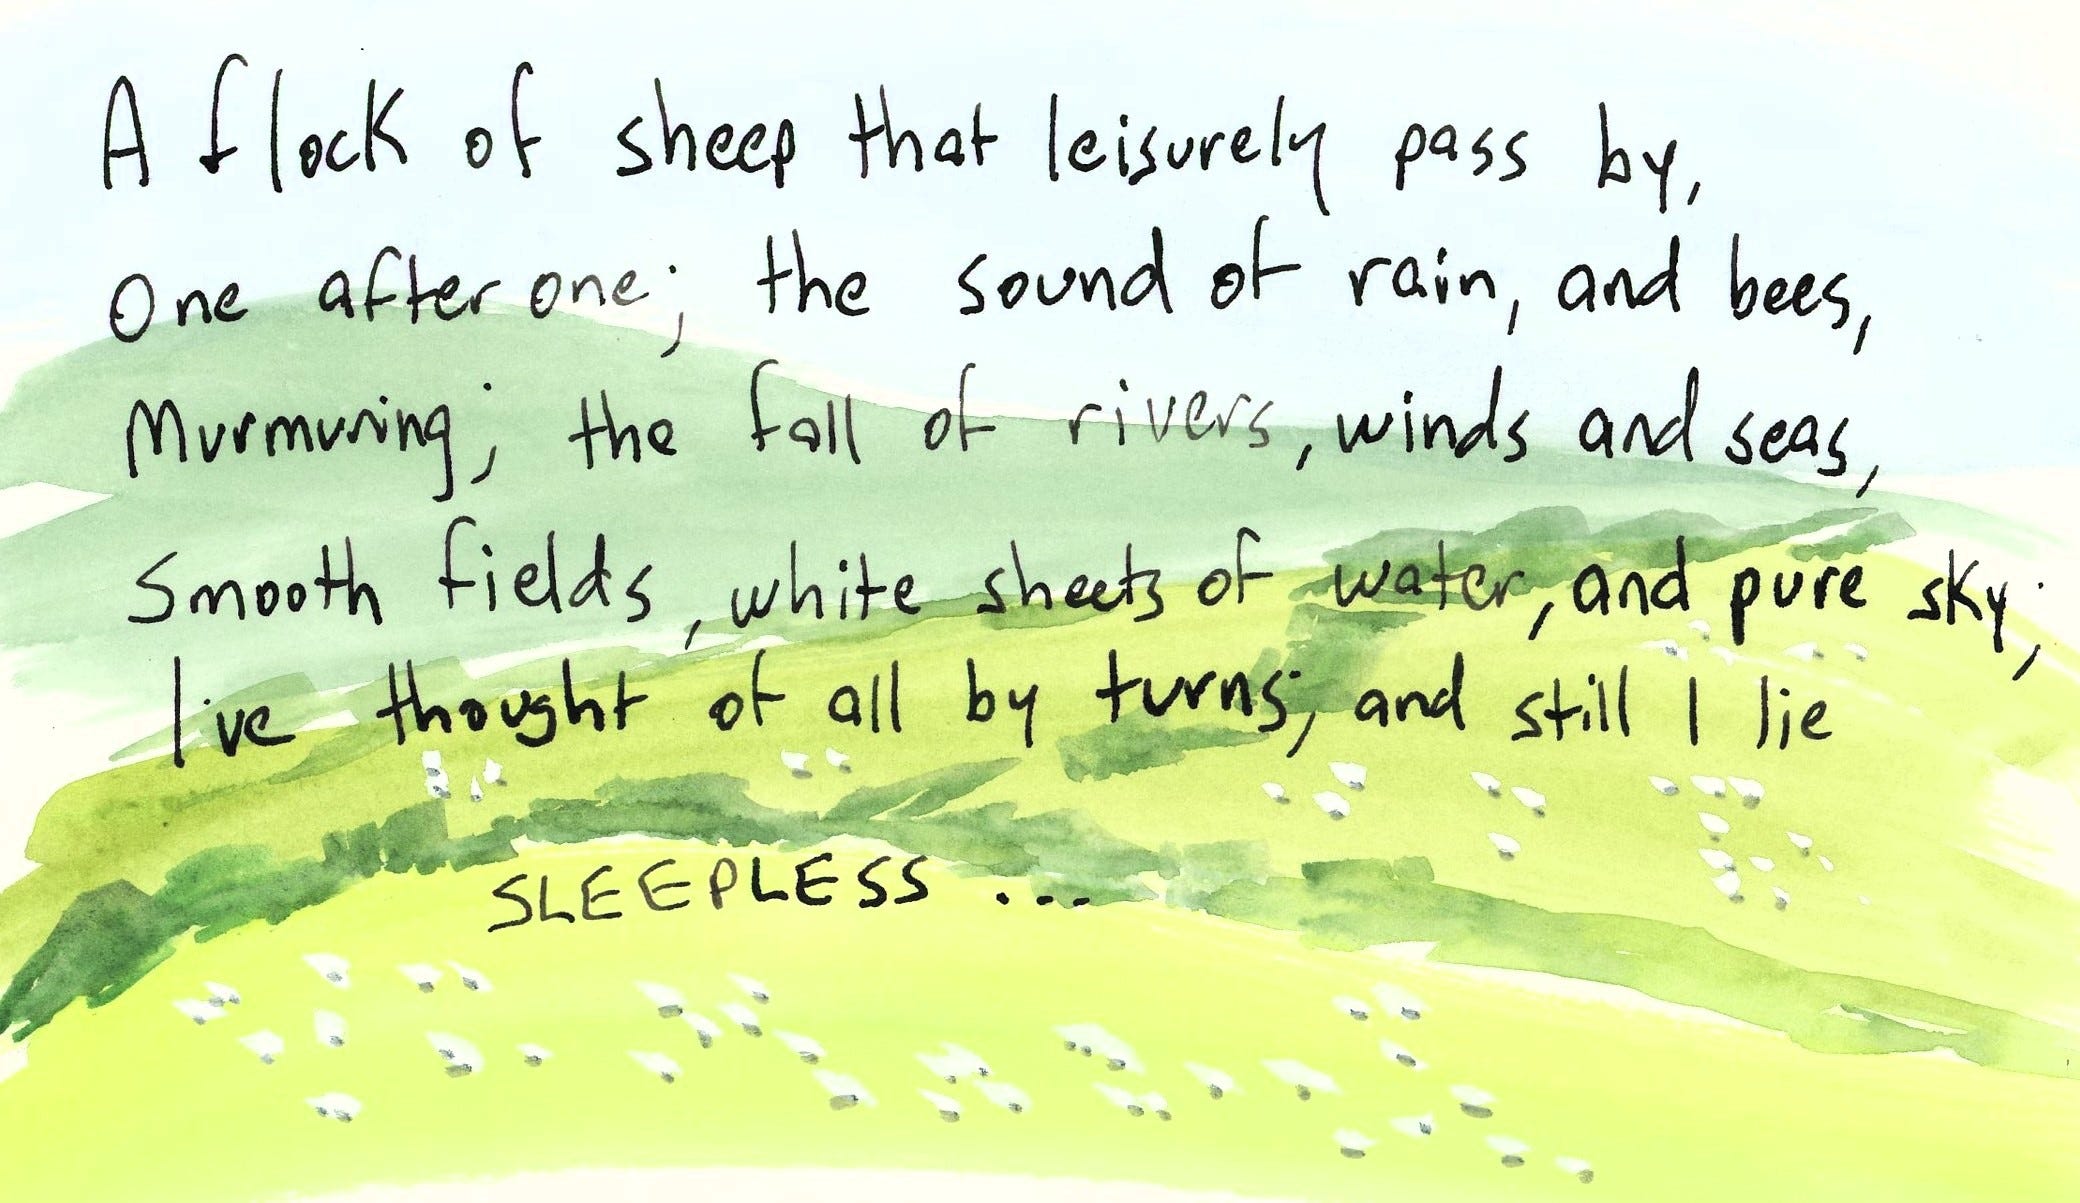 A flock of sheep that leisurely pass by,
One after one; the sound of rain, and bees,
Murmuring; the fall of rivers, winds and seas,
Smooth fields, white sheets of water, and pure sky;
I've thought of all by turns; and still I lie
SLEEPLESS ...